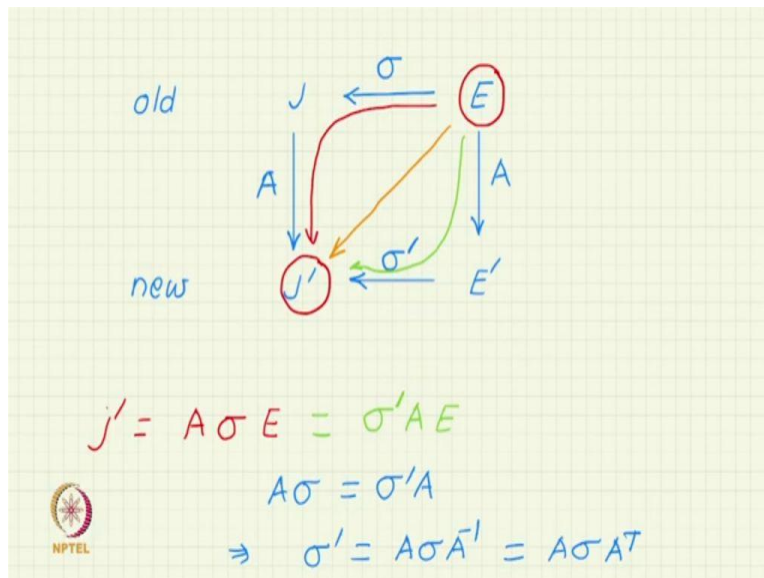 old J σ E
A A
new J′ σ′ E′
j′ = A σ E = σ′A E
Aσ = σ′A
⇒ σ′ = AσA⁻¹ = AσAᵀ
NPTEL